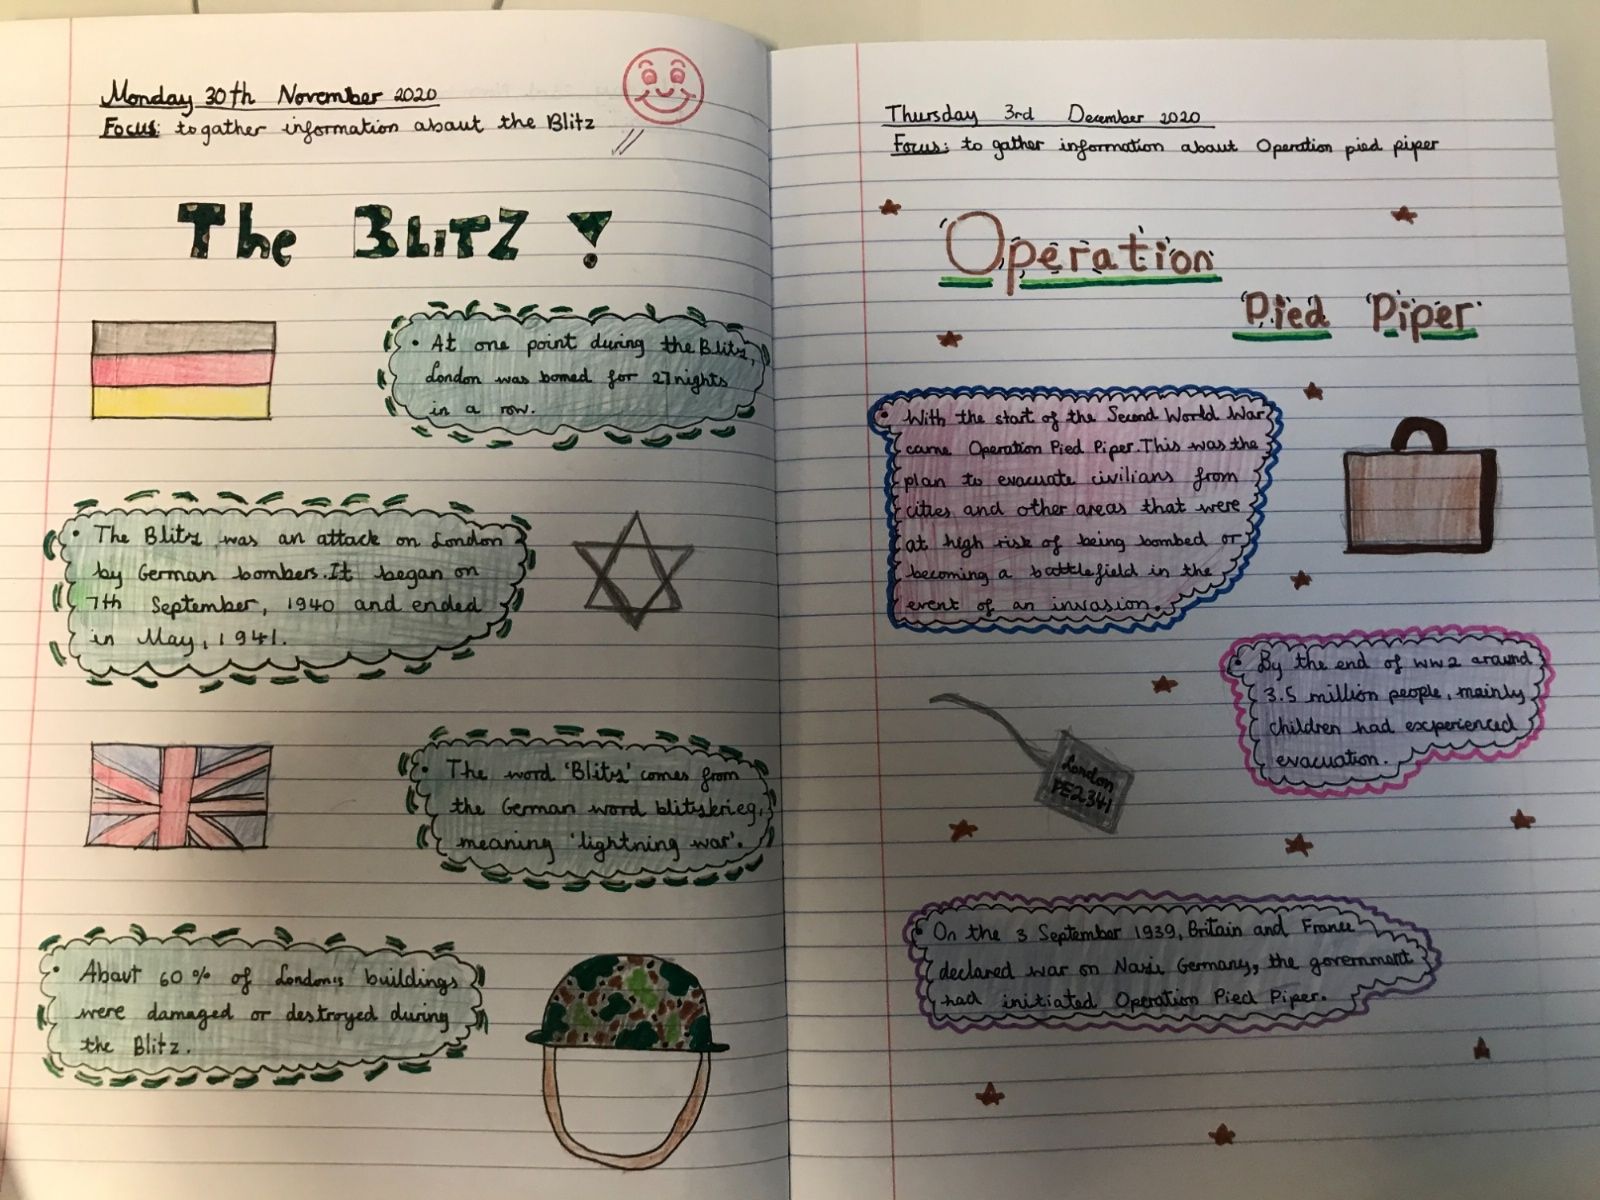 Monday 30th November 2020
Focus: to gather information about the Blitz
The BLITZ !
• At one point during the Blitz,
London was bomed for 27 nights
in a row.
• The Blitz was an attack on London
by German bombers. It began on
7th September, 1940 and ended
in May, 1941.
• The word 'Blitz' comes from
the German word blitzkrieg,
meaning 'lightning war'.
• About 60% of London's buildings
were damaged or destroyed during
the Blitz.
Thursday 3rd December 2020
Focus: to gather information about Operation pied piper
Operation
Pied Piper
• With the start of the Second World War
came Operation Pied Piper. This was the
plan to evacuate civilians from
cities and other areas that were
at high risk of being bombed or
becoming a battlefield in the
event of an invasion.
• By the end of WW2 around
3.5 million people, mainly
children had excperienced
evacuation.
London
PE2341
• On the 3 September 1939, Britain and France
declared war on Nazi Germany, the government
had initiated Operation Pied Piper.